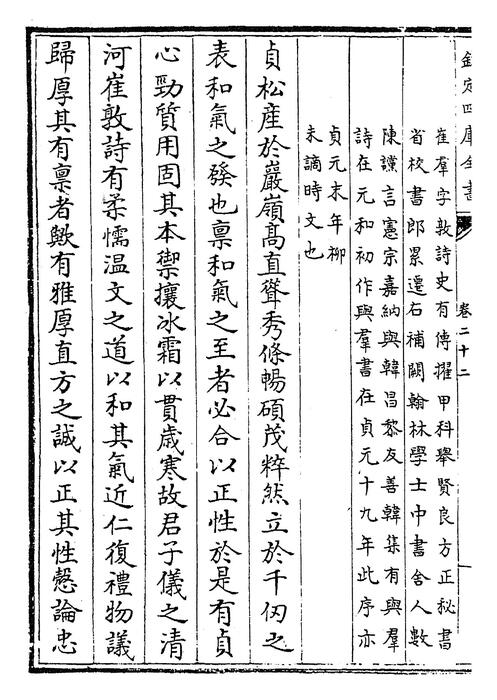 欽定四庫全書
卷二十二
崔羣字敦詩史有傳擢甲科舉賢良方正秘書
省校書郎累遷右補闕翰林學士中書舍人數
陳讜言憲宗嘉納與韓昌黎友善韓集有與羣
詩在元和初作與羣書在貞元十九年此序亦
貞元末年柳
未謫時文也
貞松産於巖嶺高直聳秀條暢碩茂粹然立於千仞之
表和氣之發也禀和氣之至者必合以正性於是有貞
心勁質用固其本禦攘冰霜以貫歳寒故君子儀之清
河崔敦詩有柔懦温文之道以和其氣近仁復禮物議
歸厚其有禀者歟有雅厚直方之誠以正其性慤論忠